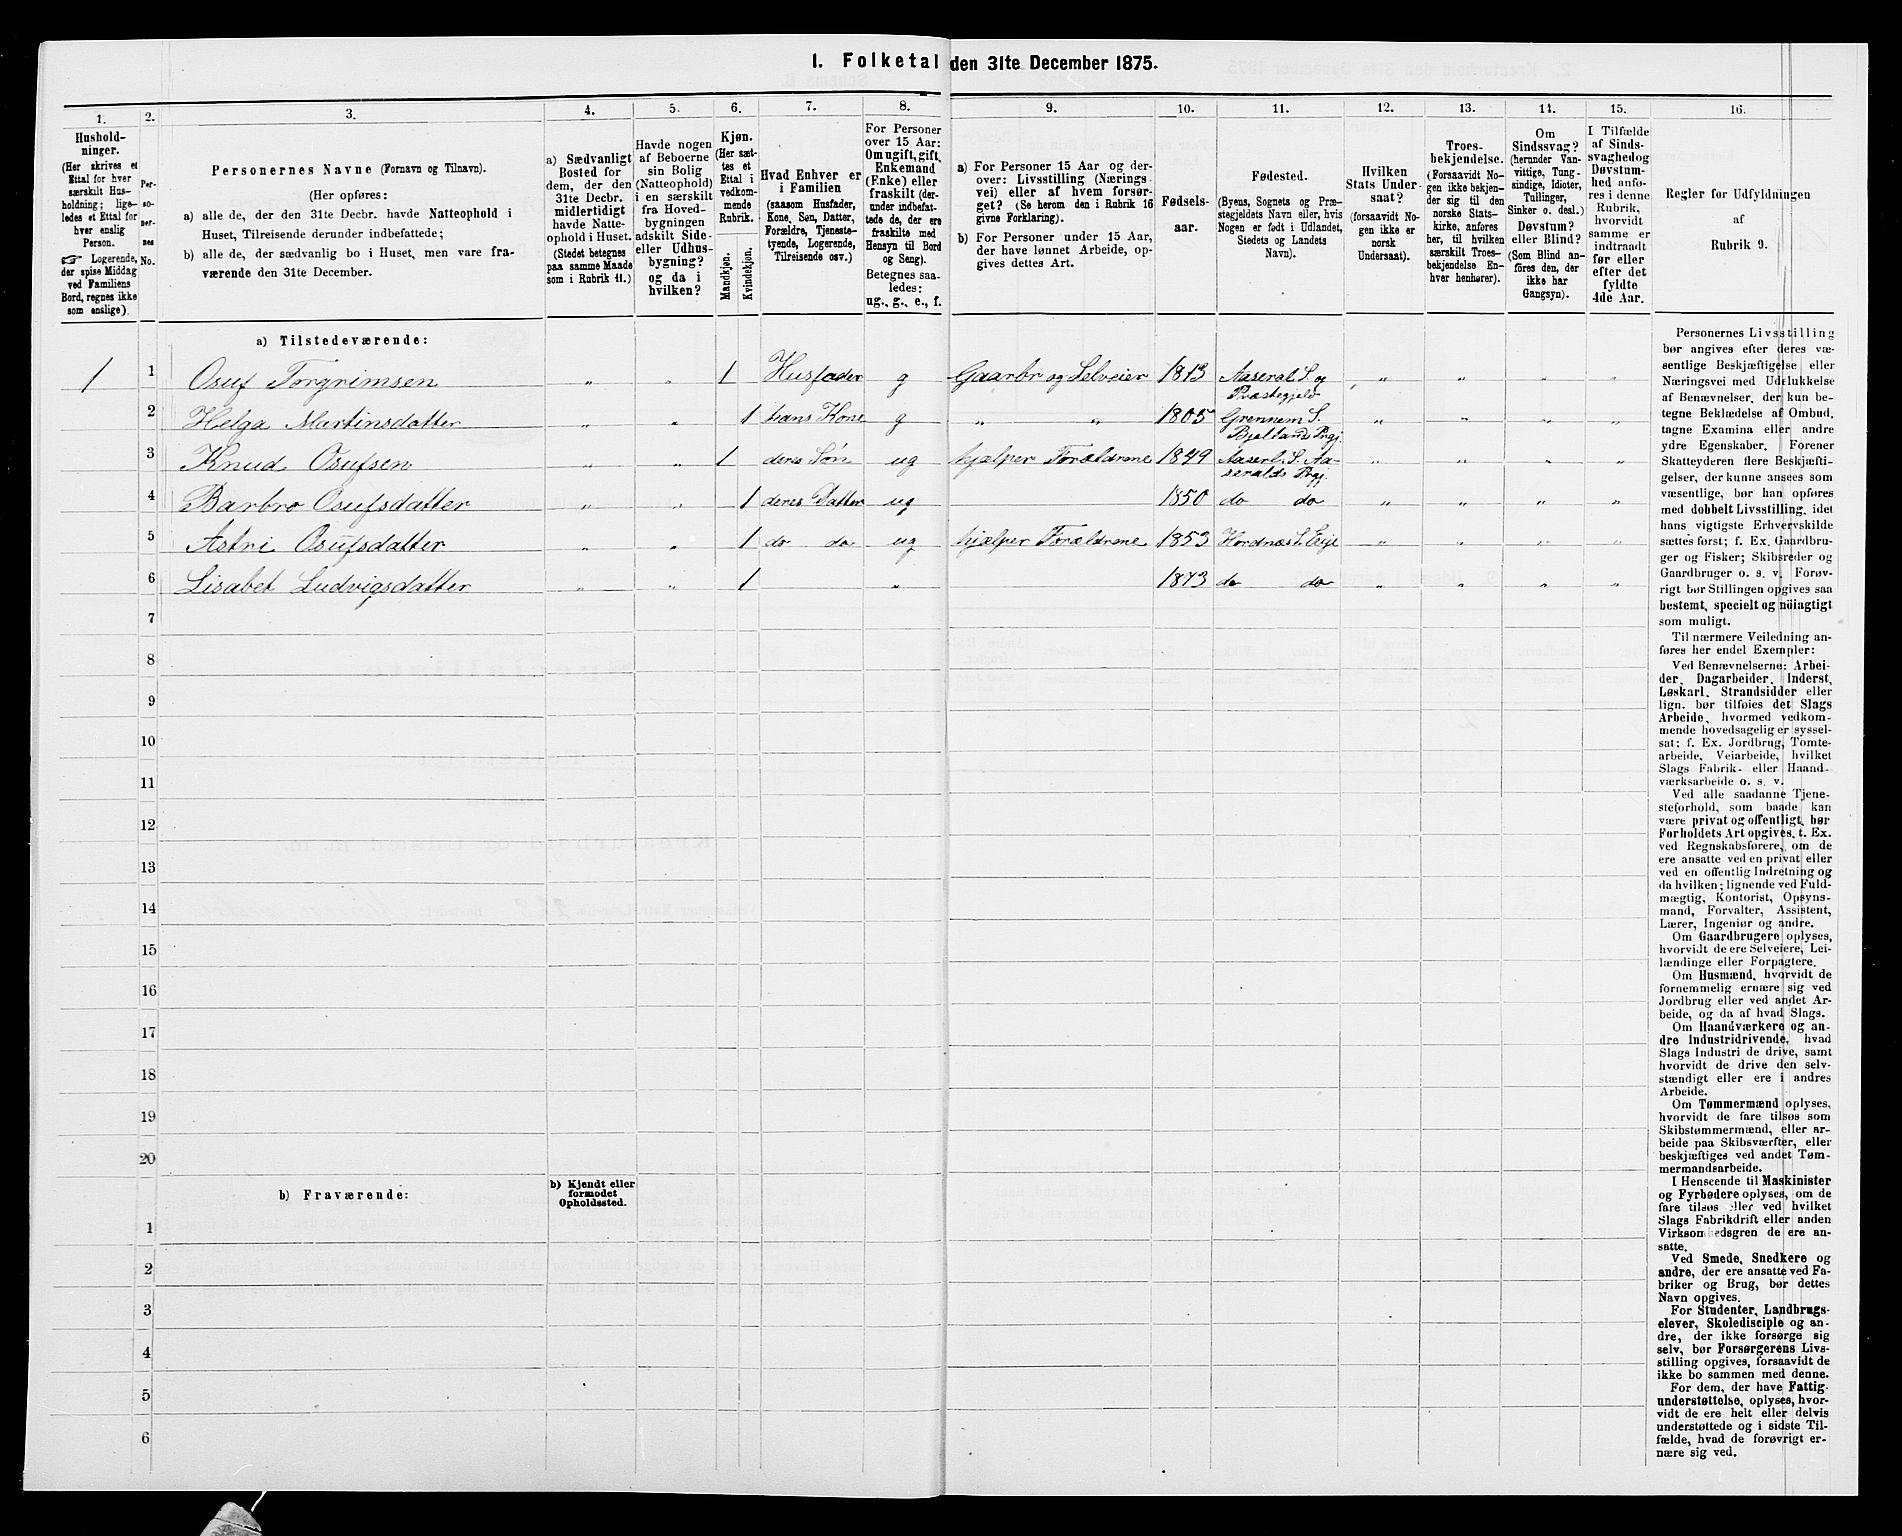 1. Folketal den 31te December 1875.
1. 2. 3. 4. 5. 6. 7. 8. 9. 10. 11. 12. 13. 14. 15. 16.
Hushold-
ninger.
(Her skrives et
Ettal for hver
særskilt Hus-
holdning; lige-
ledes et Ettal for
hver enslig
Person.
☞ Logerende,
der spise Middag
ved Familiens
Bord, regnes ikke
som enslige).
Per-
so-
ner-
nes
No.
Personernes Navne (Fornavn og Tilnavn).
(Her opføres:
a) alle de, der den 31te Decbr. havde Natteophold i
Huset, Tilreisende derunder indbefattede;
b) alle de, der sædvanlig bo i Huset, men vare fra-
værende den 31te December.
a) Sædvanligt
Bosted for
dem, der den
31te Decbr.
midlertidigt
havde Natte-
ophold i Huset.
(Stedet betegnes
paa samme Maade
som i Rubrik 11.)
Havde nogen
af Beboerne
sin Bolig
(Natteophold)
i en særskilt
fra Hoved-
bygningen
adskilt Side-
eller Udhus-
bygning?
og da i
hvilken?
Kjøn.
(Her sæt-
tes et
Ettal i
vedkom-
mende
Rubrik.
Mandkjøn.
Kvindekjøn.
Hvad Enhver er
i Familien
(saasom Husfader,
Kone, Søn, Datter,
Forældre, Tjeneste-
tyende, Logerende,
Tilreisende osv.)
For Personer
over 15 Aar:
Om ugift, gift,
Enkemand
(Enke) eller
fraskilt (der-
under indbefat-
tede de, der ere
fraskilte med
Hensyn til Bord
og Seng).
Betegnes saa-
ledes:
ug., g., e., f.
a) For Personer 15 Aar og der-
over: Livsstilling (Nærings-
vei) eller af hvem forsør-
get? (Se herom den i Rubrik 16
givne Forklaring).
b) For Personer under 15 Aar,
der have lønnet Arbeide, op-
gives dettes Art.
Fødsels-
aar.
Fødested.
(Byens, Sognets og Præ-
stegjeldets Navn eller, hvis
Nogen er født i Udlandet,
Stedets og Landets
Navn).
Hvilken
Stats Under-
saat?
(forsaavidt No-
gen ikke er
norsk
Undersaat).
Troes-
bekjendelse.
(Forsaavidt No-
gen ikke bekjen-
der sig til den
norske Stats-
kirke, anføres
her, til hvilken
særskilt Troes-
bekjendelse En-
hver henhører).
Om
Sindssvag?
(herunder Van-
vittige, Tung-
sindige, Idioter,
Tullinger,
Sinker o. desl.)
Døvstum?
eller Blind?
(Som Blind an-
føres den, der
ikke har
Gangsyn).
I Tilfælde
af Sinds-
svaghed og
Døvstum-
hed anfø-
res i denne
Rubrik,
hvorvidt
samme er
indtraadt
før eller
efter det
fyldte
4de Aar.
Regler for Udfyldningen
af
Rubrik 9.
a) Tilstedeværende:
1 1 Osuf Torgrimsen „ „ 1 Husfader g Gaarbr og Selveier 1813 Aaseral S. og Præstegjeld „ „ „ „
2 Helga Martinsdatter „ „ 1 hans Kone g „ „ 1805 Grennem S. Bjelland Prgj. „ „ „ „
3 Knud Osufsen „ „ 1 deres Søn ug hjælper Forældrene 1849 Aaserl. S. Aa-seralds Prgj. „ „ „ „
4 Barbro Osufsdatter „ „ 1 deres Datter ug 1850 do do „ „ „ „
5 Astri Osufsdatter „ „ 1 do do ug hjælper Forældrene 1853 Hordnæs S. Evje „ „ „ „
6 Lisabet Ludvigsdatter „ „ 1 „ 1873 do do „ „ „ „
7
8
9
10
11
12
13
14
15
16
17
18
19
20
b) Fraværende:
b) Kjendt eller
formodet
Opholdssted.
1
2
3
4
5
6
Personernes Livsstilling
bør angives efter deres væ-
sentlige Beskjæftigelse eller
Næringsvei med Udelukkelse
af Benævnelser, der kun be-
tegne Beklædelse af Ombud,
tagne Examina eller andre
ydre Egenskaber. Forener
Skatteyderen flere Beskjæfti-
gelser, der kunne ansees som
væsentlige, bør han opføres
med dobbelt Livsstilling, idet
hans vigtigste Erhvervskilde
sættes først; f. Ex. Gaardbru-
ger og Fisker; Skibsreder og
Gaardbruger o. s. v. Forøv-
rigt bør Stillingen opgives saa
bestemt, specielt og nöiagtigt
som muligt.
Til nærmere Veiledning an-
føres her endel Exempler:
Ved Benævnelserne: Arbei-
der, Dagarbeider, Inderst,
Løskarl, Strandsidder eller
lign. bør tilføies det Slags
Arbeide, hvormed vedkom-
mende hovedsagelig er syssel-
sat; f. Ex. Jordbrug, Tomte-
arbeide, Veiarbeide, hvilket
Slags Fabrik- eller Haand-
værksarbeide o. s. v.
Ved alle saadanne Tjene-
steforhold, som baade kan
være privat og offentligt, bør
Forholdets Art opgives, t. Ex.
ved Regnskabsførere, om de
ere ansatte ved en privat eller
ved en offentlig Indretning og
da hvilken; lignende ved Fuld-
mægtig, Kontorist, Opsyns-
mand, Forvalter, Assistent,
Lærer, Ingeniør og andre.
Om Gaardbrugere oplyses,
hvorvidt de ere Selveiere, Lei-
lændinge eller Forpagtere.
Om Husmænd, hvorvidt de
fornemmelig ernære sig ved
Jordbrug eller ved andet Ar-
beide, og da af hvad Slags.
Om Haandværkere og an-
dre Industridrivende, hvad
Slags Industri de drive, samt
hvorvidt de drive den selv-
stændigt eller ere i andres
Arbeide.
Om Tømmermænd oplyses,
hvorvidt de fare tilsøs som
Skibstømmermænd, eller ar-
beide paa Skibsværfter, eller
beskjæftiges ved andet Tøm-
mermandsarbeide.
I Henseende til Maskinister
og Fyrbødere oplyses, om de
fare tilsøs eller ved hvilket
Slags Fabrikdrift eller anden
Virksomhedsgren de ere an-
satte.
Ved Smede, Snedkere og
andre, der ere ansatte ved Fa-
briker og Brug, bør dettes
Navn opgives.
For Studenter, Landbrugs-
elever, Skoledisciple og an-
dre, der ikke forsørge sig
selv, bør Forsørgerens Livs-
stilling opgives, forsaavidt de
ikke bo sammen med denne.
For dem, der have Fattig-
understøttelse, oplyses, hvor-
vidt de ere helt eller delvis
understøttede og i sidste Til-
fælde, hvad de forøvrigt er-
nære sig ved.